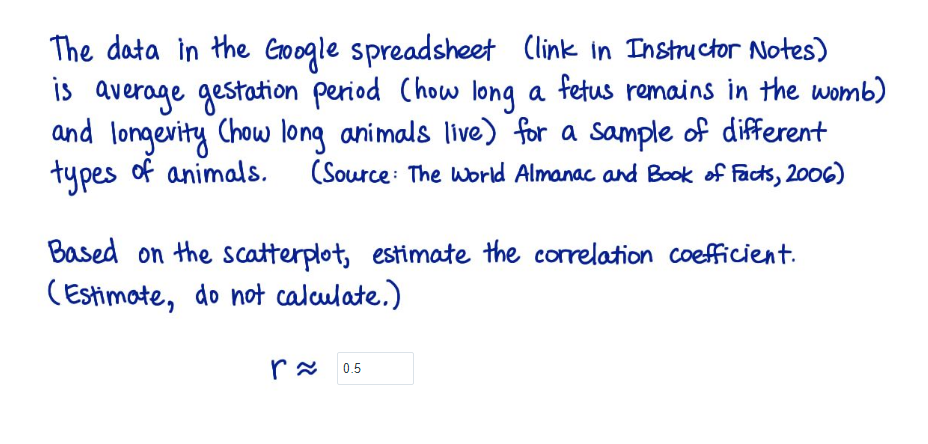 The data in the Google spreadsheet (link in Instructor Notes)
is average gestation period (how long a fetus remains in the womb)
and longevity (how long animals live) for a sample of different
types of animals. (Source: The World Almanac and Book of Facts, 2006)
Based on the scatterplot, estimate the correlation coefficient.
(Estimate, do not calculate.)
r ≈ 0.5